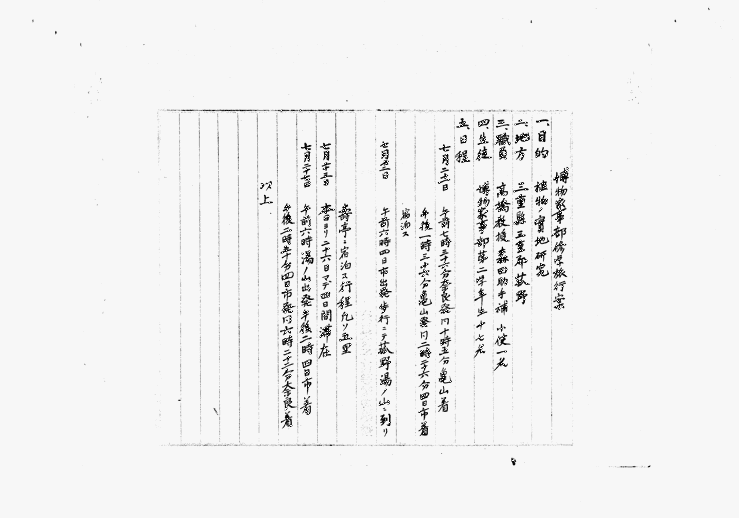 博物家事部修学旅行案
一、目的　植物ノ實地研究
二、地方　三重縣三重郡菰野
三、職員　高橋教授森田助手補小使一名
四、生徒　博物家事部第二学年生十七名
五、日程
七月二十三日　午前七時三十六分奈良発同十時五分亀山着
午後一時三十六分亀山発同二時二十六分四日市着
宿泊ス
七月二十四日　午前六時四日市出発歩行ニテ菰野湯ノ山ニ到リ
壽亭ニ宿泊ス行程凡ソ五里
七月二十五日　本日ヨリ二十六日マデ四日間滞在
七月二十七日　午前六時湯ノ山出発午後二時四日市着
午後二時五十分四日市発同六時二十二分奈良着
以上